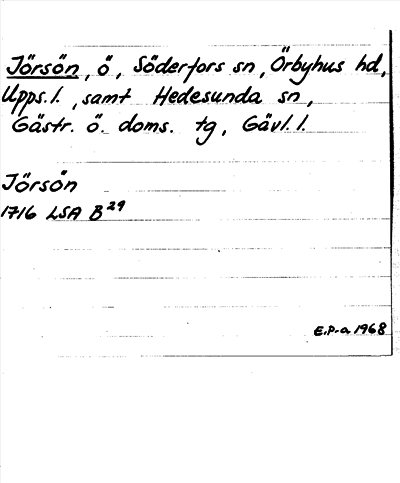 Jörsön, ö, Söderfors sn, Örbyhus hd,
Upps. l., samt Hedesunda sn,
Gästr. ö. doms. tg, Gävl. l.
Jörsön
1716 LSA B 29
E.P-a 1968